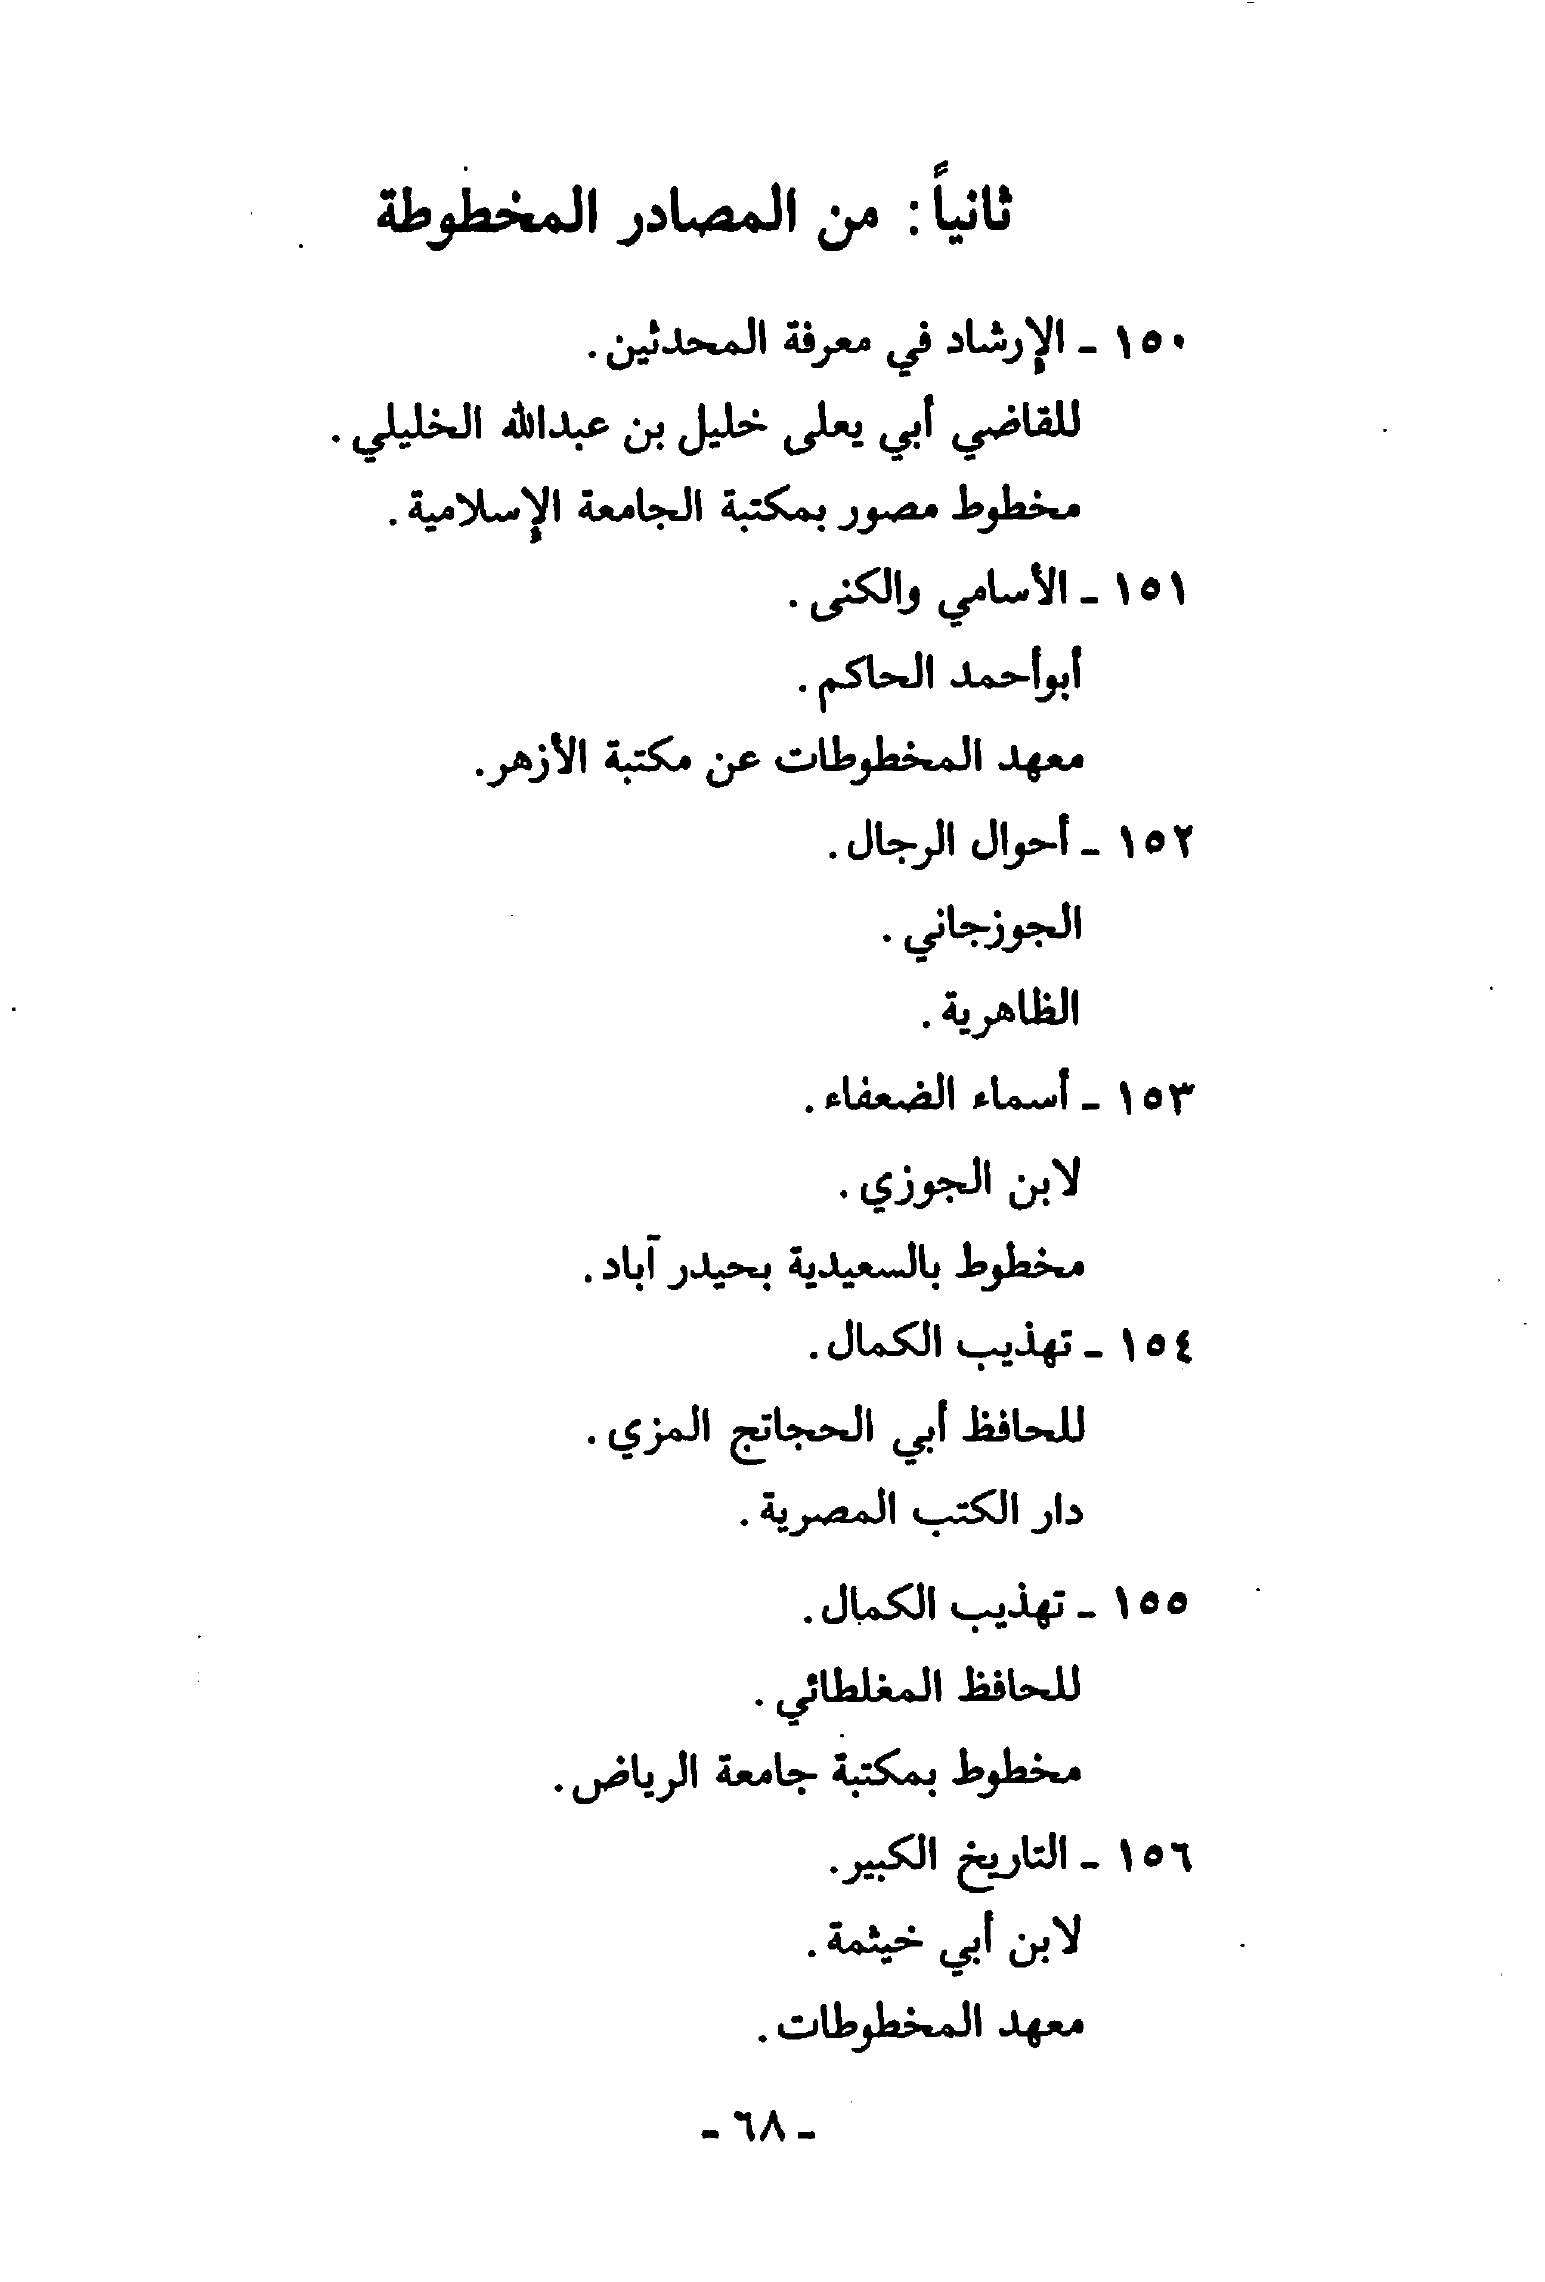 ثانياً: من المصادر المخطوطة
١٥٠ - الإرشاد في معرفة المحدثين.
للقاضي أبي يعلى خليل بن عبدالله الخليلي.
مخطوط مصور بمكتبة الجامعة الإسلامية.
١٥١ - الأسامي والكنى.
أبوأحمد الحاكم.
معهد المخطوطات عن مكتبة الأزهر.
١٥٢ - أحوال الرجال.
الجوزجاني.
الظاهرية.
١٥٣ - أسماء الضعفاء.
لابن الجوزي.
مخطوط بالسعيدية بحيدر آباد.
١٥٤ - تهذيب الكمال.
للحافظ أبي الحجاتج المزي.
دار الكتب المصرية.
١٥٥ - تهذيب الكمال.
للحافظ المغلطائي.
مخطوط بمكتبة جامعة الرياض.
١٥٦ - التاريخ الكبير.
لابن أبي خيثمة.
معهد المخطوطات.
- ٦٨ -